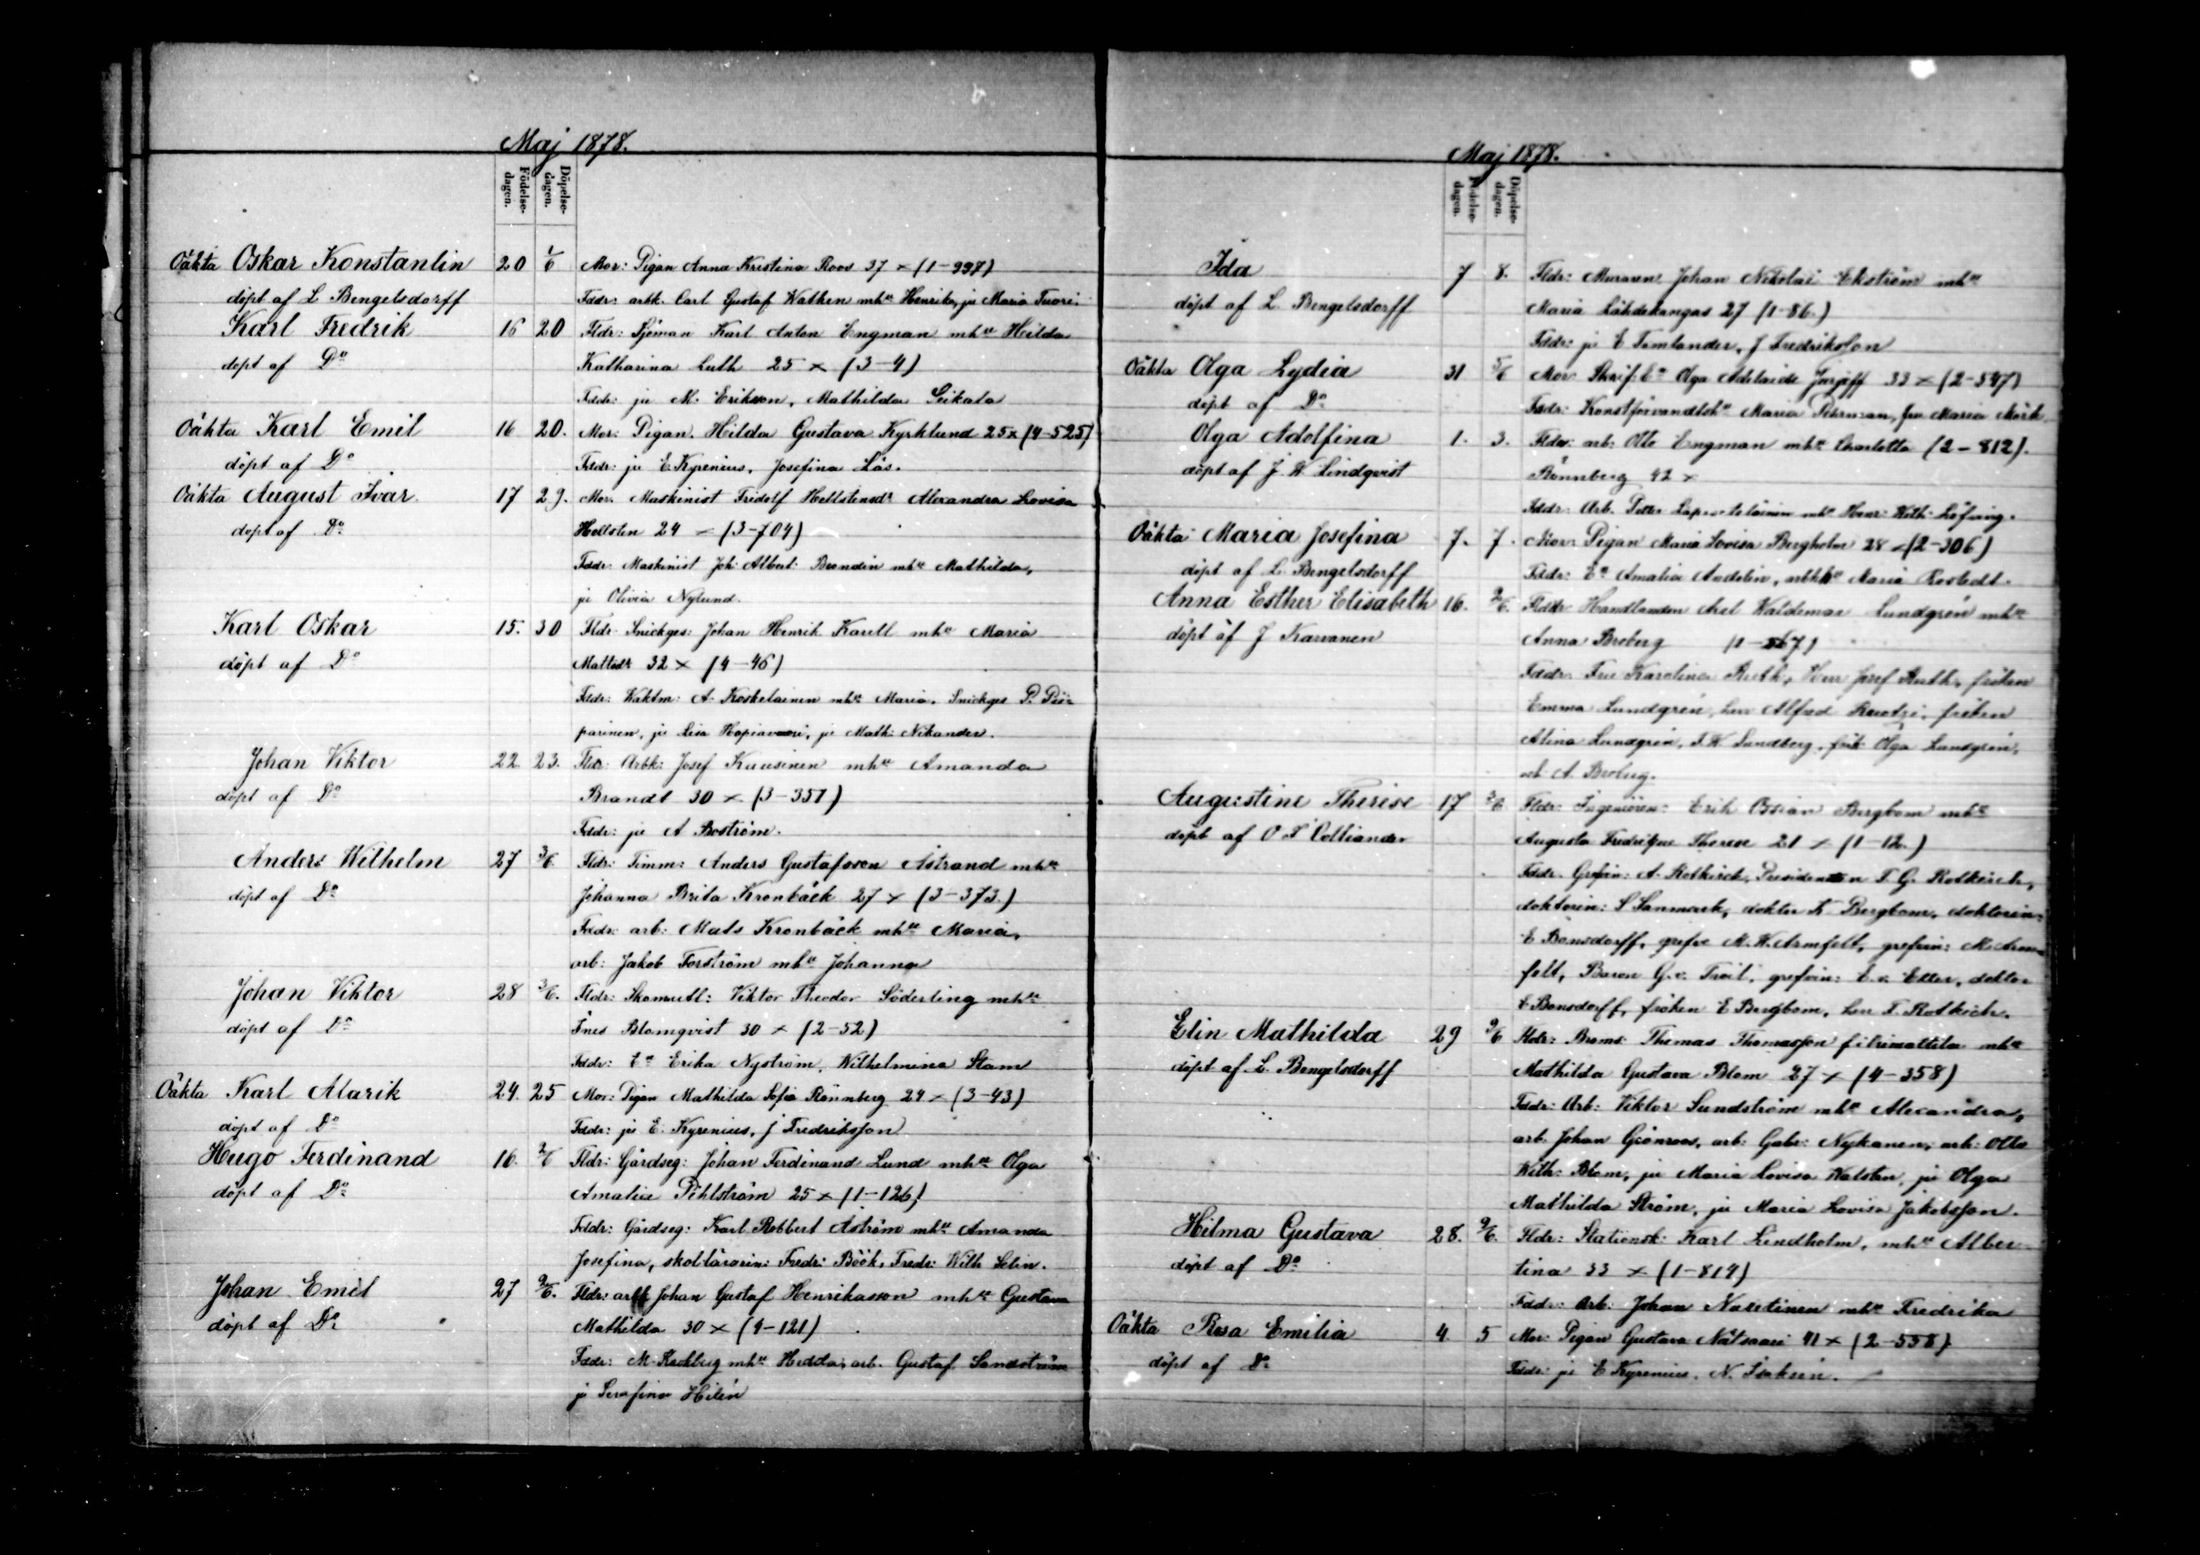 Maj 1878.
Födelse-dagen. Döpelse-dagen.
Oäkta Oskar Konstantin 20 1/6 Mor: Pigan Anna Kristina Roos 37 × (1-997)
döpt af L Bengelsdorff Fddr: arbk. Carl Gustaf Wathen mhu Henrika, ju Maria Tuori
Karl Fredrik 16 20 Fldr: Sjöman Karl Anton Engman mhu Hilda
döpt af Do Katharina Luth 25 × (3-4)
Fddr: ju M. Erikson, Mathilda Seikala
Oäkta Karl Emil 16 20. Mor: Pigan. Hilda Gustava Kyrklund 25 × (4-525)
döpt af Do Fddr: ju E. Kyrenius, Josefina Lås.
Oäkta August Ivar 17 29. Mor: Maskinist Fridolf Hellstensdr Alexandra Lovisa
döpt af Do Hellsten 24 - (3-704)
Fddr: Maskinist Joh: Albert: Brandin mhu Mathilda,
ju Olivia Nylund.
Karl Oskar 15. 30 Fldr: Snickges: Johan Henrik Karell mhu Maria
döpt af Do Mattsdr 32 × (4-46)
Fddr: Waktm: A. Koskelainen mhu Maria, Snickges P. Pii-
parinen, ju Lisa Hopiavuori, ju Math: Nikander.
Johan Viktor 22. 23. Fldr: Arbk: Josef Kuusinen mhu Amanda
döpt af Do Brandt 30 × (3-351)
Fddr: ju A Boström.
Anders Wilhelm 27 3/6 Fldr: Timm: Anders Gustafsson Åstrand mhu
döpt af Do Johanna Brita Kronbäck 27 × (3-373.)
Fddr: arb: Mats Kronbäck mhu Maria,
arb: Jakob Forström mhu Johanna
Johan Viktor 28 3/6. Fldr: Skomaell: Viktor Theodor Söderling mhu
döpt af Do Ines Blomqvist 30 × (2-52)
Fddr: Ea Erika Nyström, Wilhelmina Stam
Oäkta Karl Alarik 24. 25 Mor: Pigan Mathilda Sofia Rönnberg 24 × (3-43)
döpt af Do Fddr: ju E. Kyrenius, J Fredriksson
Hugo Ferdinand 16. 2/6 Fldr: Gårdseg: Johan Ferdinand Lund mhu Olga
döpt af Do Amalia Pihlström 25 × (1-126)
Fddr: Gårdseg: Karl Robbert Åström mhu Amanda
Josefina, skollärarin: Fredr: Böök, Fredr: Wilh Selin.
Johan Emil 27 2/6. Fldr: arbk Johan Gustaf Henriksson mhu Gustava
döpt af Do Mathilda 30 × (4-121)
Fddr: M. Kackberg mhu Hedda, arb. Gustaf Sandström
ju Serafina Hilén
Maj 1878.
Födelse-dagen. Döpelse-dagen.
Ida 7 8. Fldr: Muraren Johan Nikolai Ekström mhu
döpt af L. Bengelsdorff Maria Lähdekangas 27 (1-86.)
Fddr: ju E Temlander, J Fredriksson
Oäkta Olga Lydia 31 5/6 Mor Skrif: Ea Olga Adelaide 33 × (2-547)
döpt af Do Fddr: Maria Peterman, fru Maria Mörk
Olga Adolfina 1. 3. Fldr: arb: Otto Engman mhu Charlotta (2-812).
döpt af J. W Lindqvist Rönnberg 42 ×
Fddr: Arb. Petter mhu Henr: Wilh: Löfving.
Oäkta Maria Josefina 7. 7. Mor: Pigan Maria Lovisa Bergholm 28 × (2-306)
döpt af L. Bengelsdorff Fddr: Ea Amalia Andelin, Maria Rostedt.
Anna Esther Elisabeth 16. 2/6. Fldr: Handlanden Axel Waldemar Lundgrén mhu
döpt af J Karvanen Anna Broberg (1-567)
Fddr: Fru Karolina Ruth, Herr Josef Ruth, fröken
Emma Lundgrén, herr Alfred, fröken
Alina Lundgrén, I. W Lundberg, frök: Olga Lundgrén,
och A. Broberg.
Augustine Therése 17 2/6. Fldr: Ingeniören: Erik Ossian Bergbom mhu
döpt af O I Colliander Augusta Fredrique Therese 21 × (1-12.)
Fddr. Grefvin: A. Rotkirch, Presidenten T. G. Rotkirch,
doktorin: S Sanmark, doktor K Bergbom, doktorin:
E Bonsdorff, grefve M. W. Armfelt, grefvin: M. Arm-
felt, Baron G. v. Troil, grefvin: E. v. Etter, doktor
E Bonsdorff, fröken E Bergbom, herr T. Rotkirch.
Elin Mathilda 29 9/6 Fldr: Broms: Thomas Thomasson filrimattila mhu
döpt af L. Bengelsdorff Mathilda Gustava Blom 27 × (4-358)
Fddr: Arb: Viktor Sundström mhu Alexandra,
arb. Johan Grönroos, arb: Gabr: Nykänen, arb: Otto
Wilh: Blom, ju Maria Lovisa Walsten, ju Olga
Mathilda Ström, ju Maria Lovisa Jakobsson.
Hilma Gustava 28. 9/6. Fldr: Stationsk: Karl Lindholm, mhu Alber-
döpt af Do tina 33 × (1-814)
Fddr: Arb: Johan Nuutinen mhu Fredrika
Oäkta Rosa Emilia 4 5 Mor: Pigan Gustava Nätsaari 41 × (2-558)
döpt af Do Fddr: ju E Kyrenius, N. Isaksén.